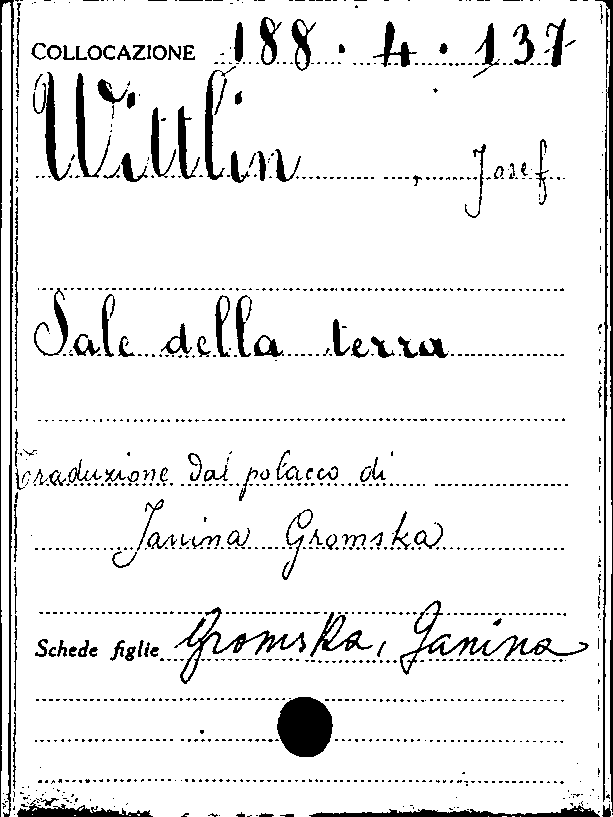 COLLOCAZIONE 188.4.137
Wittlin, Josef
Sale della terra
Traduzione dal polacco di
Janina Gromska
Schede figlie Gromska, Janina